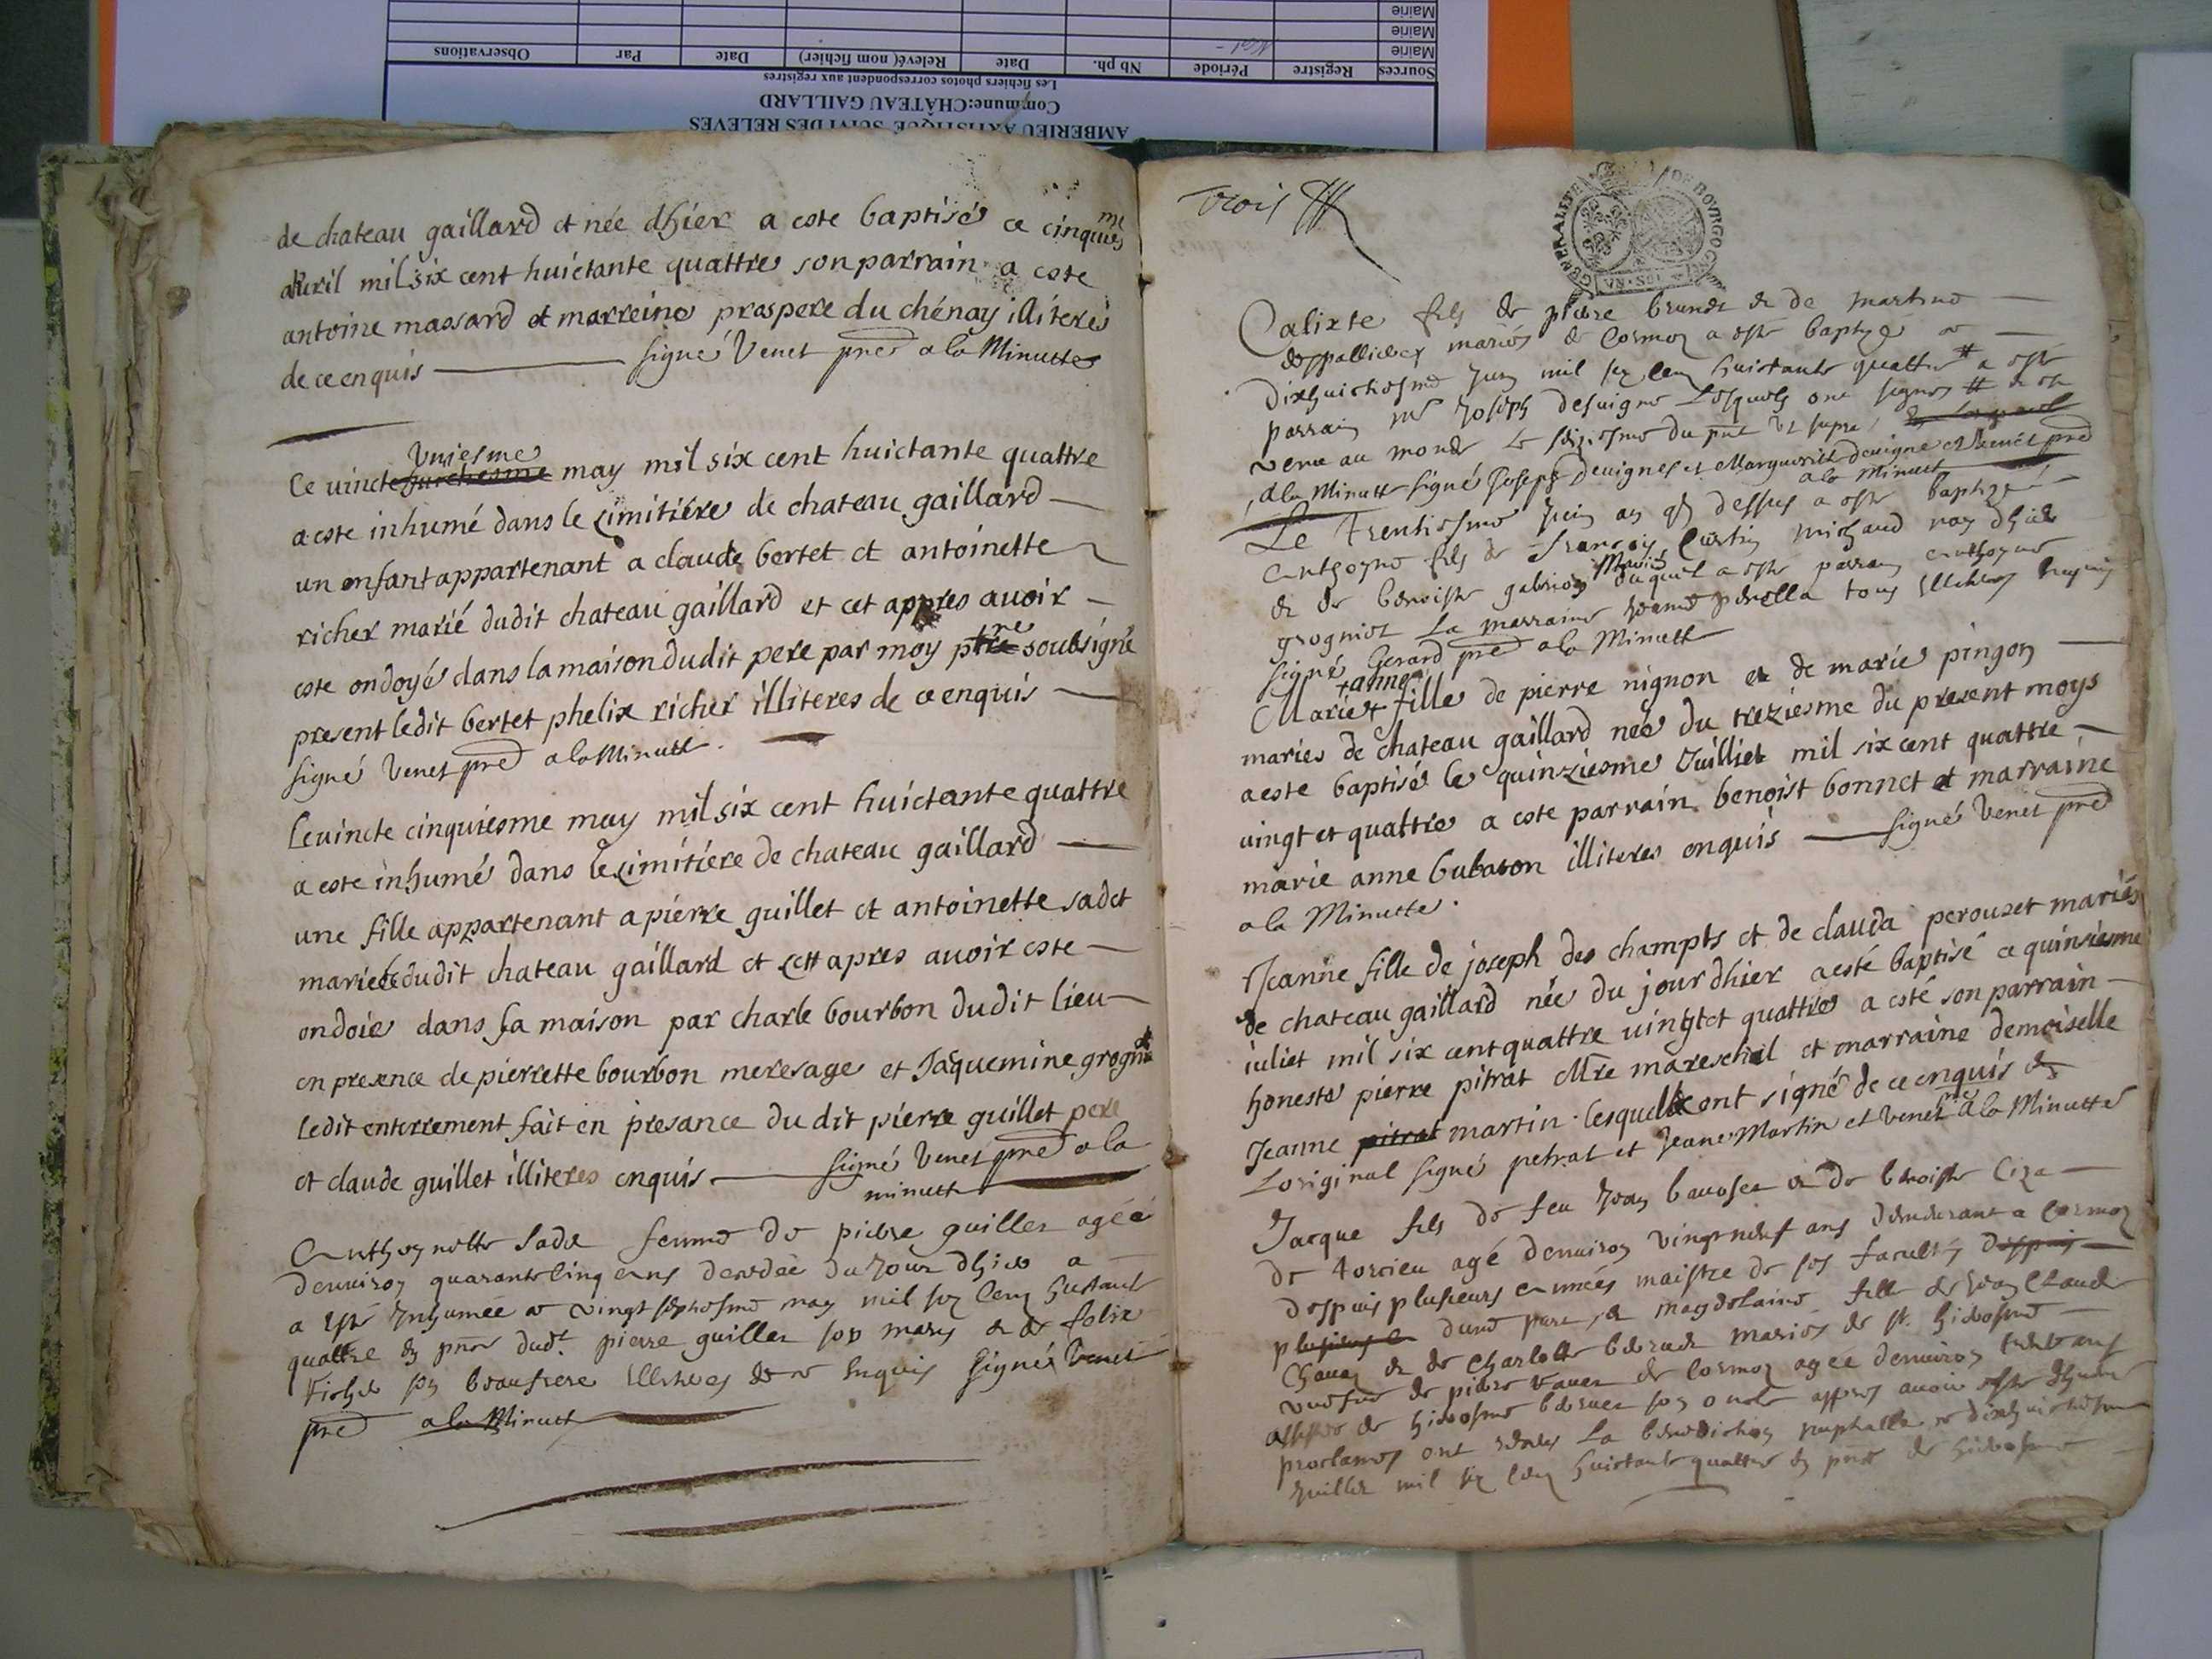 AMBERIEU ARTISTIQUE SUIVI DES RELEVES
Commune:CHÂTEAU GAILLARD
Les fichiers photos correspondent aux registres
Sources Registre Période Nb ph. Date Relevé( nom fichier) Date Par Observations
Mairie
Mairie
Mairie
de chateau gaillard et née dhier a este baptisé ce cinquies
me
auril mil six cent huictante quattre son parrain a este
antoine massard et marreine prospere du chénay illiteres
de ce enquis signé Venet pre a la Minutte
vniesme
Ce uincte may mil six cent huictante quattre
a este inhumé dans le cimitiére de chateau gaillard
un enfant appartenant a claude bertet et antoinette
richer marié dudit chateau gaillard et cet appres auoir
este ondoyé dans la maison dudit pere par moy ptre soubsigné
present ledit bertet phelix richer illiteres de ce enquis
signé Venet pre a la Minutte
le uincte cinquiesme may mil six cent huictante quattre
a este inhumé dans le cimitiere de chateau gaillard
une fille appartenant a pierre guillet et antoinette sadet
mariés dudit chateau gaillard et cett apres auoir este
ondoié dans sa maison par charle bourbon dudit lieu
en presence de pierrette bourbon meresage et Jaquemine
ledit enterrement fait en presance du dit pierre guillet pere
et claude guillet illiteres enquis signé Venet pre a la
minutte
Anthoynette Sadet femme de pierre guillet agéé
denuiron quarante cinq ans decedée du Jour dhier a
a esté Inhumée ce vingt septiesme may mil six cens huictante
quattre en pnce dudt. pierre guillet son mary et de felix
richer son beaufrere Illiteres de ce Enquis signé Venet
pre a la Minutte
trois
GENERALITE DE BOVRGOGNE
VN SOL
Calixte fils de pierre brunet et de martine
mariés de Cormoz a esté baptizé ce
Dixhuictiesme Juin mil six cens huictante quattre # a esté
parrain Mr Joseph deuigne Lesquels ont signés # et est
venu au monde le seiziesme du pnt vt supra
a la Minutte signé Joseph deuignes et Marguerite deuigne et Venet pre
a la Minutte
Le trentiesme Juin an qs dessus a esté baptizé
Anthoyne fils de francois Curtin michaud nay dhier
et de benoiste gabrion Mariés duquel a esté parrain anthoyne
grogniet La marraine Jeanne perella tous Illiteres Enquis
signé Gerard pre a la Minutte
+ anne
Marie + fille de pierre nignon et de marie pingon
mariés de chateau gaillard née du treziesme du present moys
a este baptisé le quinziesme Juilliet mil six cent quattre
uingt et quattre a este parrain benoist bonnet et marraine
marie anne bubaton illiteres enquis signé Venet pre
a la Minutte
Jeanne fille de joseph des champts et de clauda perouset mariés
de chateau gaillard née du jour dhier a esté baptisé ce quinsiesme
iuliet mil six cent quattre uingt et quattre a esté son parrain
honeste pierre pitrat Mre mareschal et marraine demoiselle
Jeanne pitrat martin lesquelle ont signé de ce enquis et
Loriginal signé petrat et Jeane Martin et Venet pre a la Minutte
Jacque fils de feu Jean et de benoiste
de torcieu agé denuiron vingt neuf ans demeurant a Cormoz
despuis plusieurs années maistre de ses facultés despuis
dune part, et magdelaine fille de Jean Claude
et de Charlotte mariés de st. hierosme
vuefue de pierre de Cormoz agée denuiron trente ans
assistée de hierosme son oncle appres auoir esté
proclamés ont receus La benediction nuptialle ce dixhuictiesme
Juillet mil six cens huictante quattre en pnce de hierosme